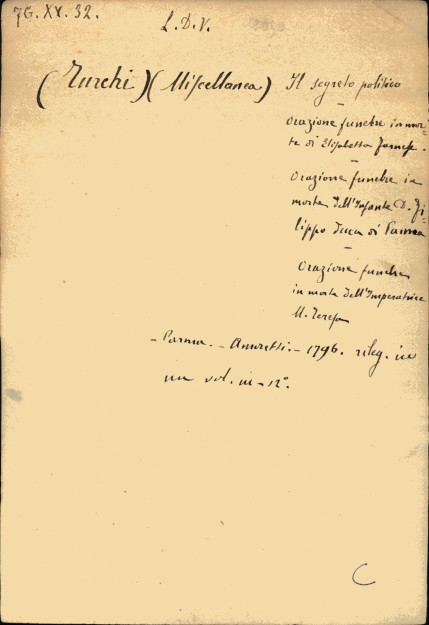 76. XV. 32.
L. D. V.
(Turchi) (Miscellanea) Il segreto politico
—
Orazione funebre in mor-
te di Elisabetta Farnese.
—
Orazione funebre in
morte dell'Infante D. Fi-
lippo Duca di Parma
—
Orazione funebre
in morte dell'Imperatrice
M. Teresa
— Parma. — Amoretti. — 1796. rileg. in
un vol. in-12°.
C